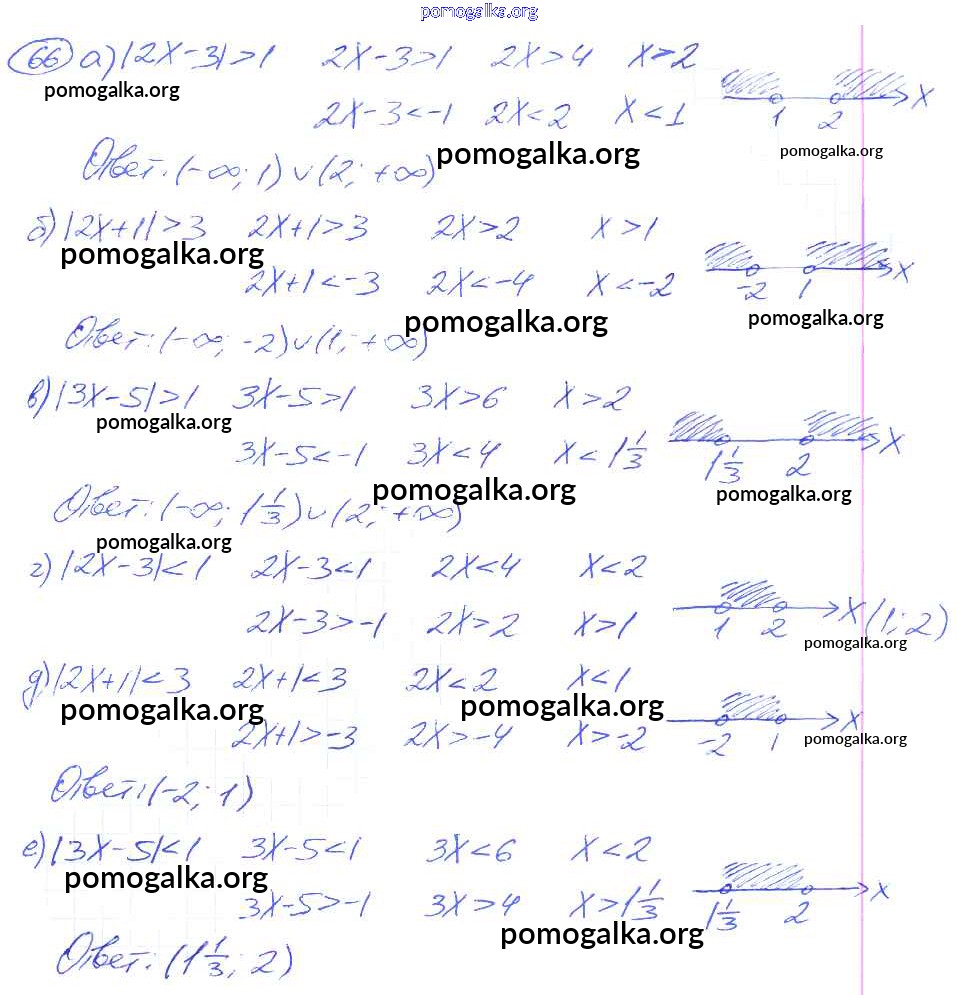 pomogalka.org
66 а) |2x-3|>1 2x-3>1 2x>4 x>2
pomogalka.org
2x-3<-1 2x<2 x<1
1 2 x
Ответ: (-∞; 1) ∪ (2; +∞)
pomogalka.org pomogalka.org
б) |2x+1|>3 2x+1>3 2x>2 x>1
pomogalka.org
2x+1<-3 2x<-4 x<-2
-2 1 x
Ответ: (-∞; -2) ∪ (1; +∞)
pomogalka.org pomogalka.org
в) |3x-5|>1 3x-5>1 3x>6 x>2
pomogalka.org
3x-5<-1 3x<4 x<1 1/3
1 1/3 2 x
pomogalka.org pomogalka.org
Ответ: (-∞; 1 1/3) ∪ (2; +∞)
pomogalka.org
г) |2x-3|<1 2x-3<1 2x<4 x<2
2x-3>-1 2x>2 x>1
1 2 x (1; 2)
pomogalka.org
д) |2x+1|<3 2x+1<3 2x<2 x<1
pomogalka.org pomogalka.org
2x+1>-3 2x>-4 x>-2
-2 1 x
pomogalka.org
Ответ: (-2; 1)
е) |3x-5|<1 3x-5<1 3x<6 x<2
pomogalka.org
3x-5>-1 3x>4 x>1 1/3
1 1/3 2 x
pomogalka.org
Ответ: (1 1/3; 2)